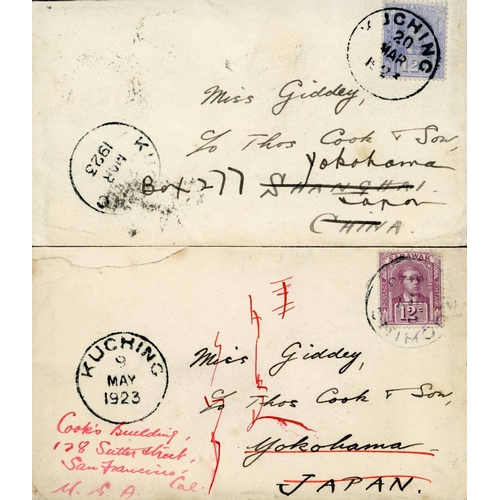 KUCHING
20
MAR
1923
12c
Miss Giddey,
c/o Thos Cook & Son,
Yokohama
Box 277 SHANGHAI.
Japan
CHINA.
MAR
1923
SARAWAK
12c
KUCHING
9
MAY
1923
Miss Giddey,
c/o Thos Cook & Son,
Yokohama
JAPAN.
Cook's Building,
128 Sutter Street,
San Francisco,
Cal.
U. S. A.